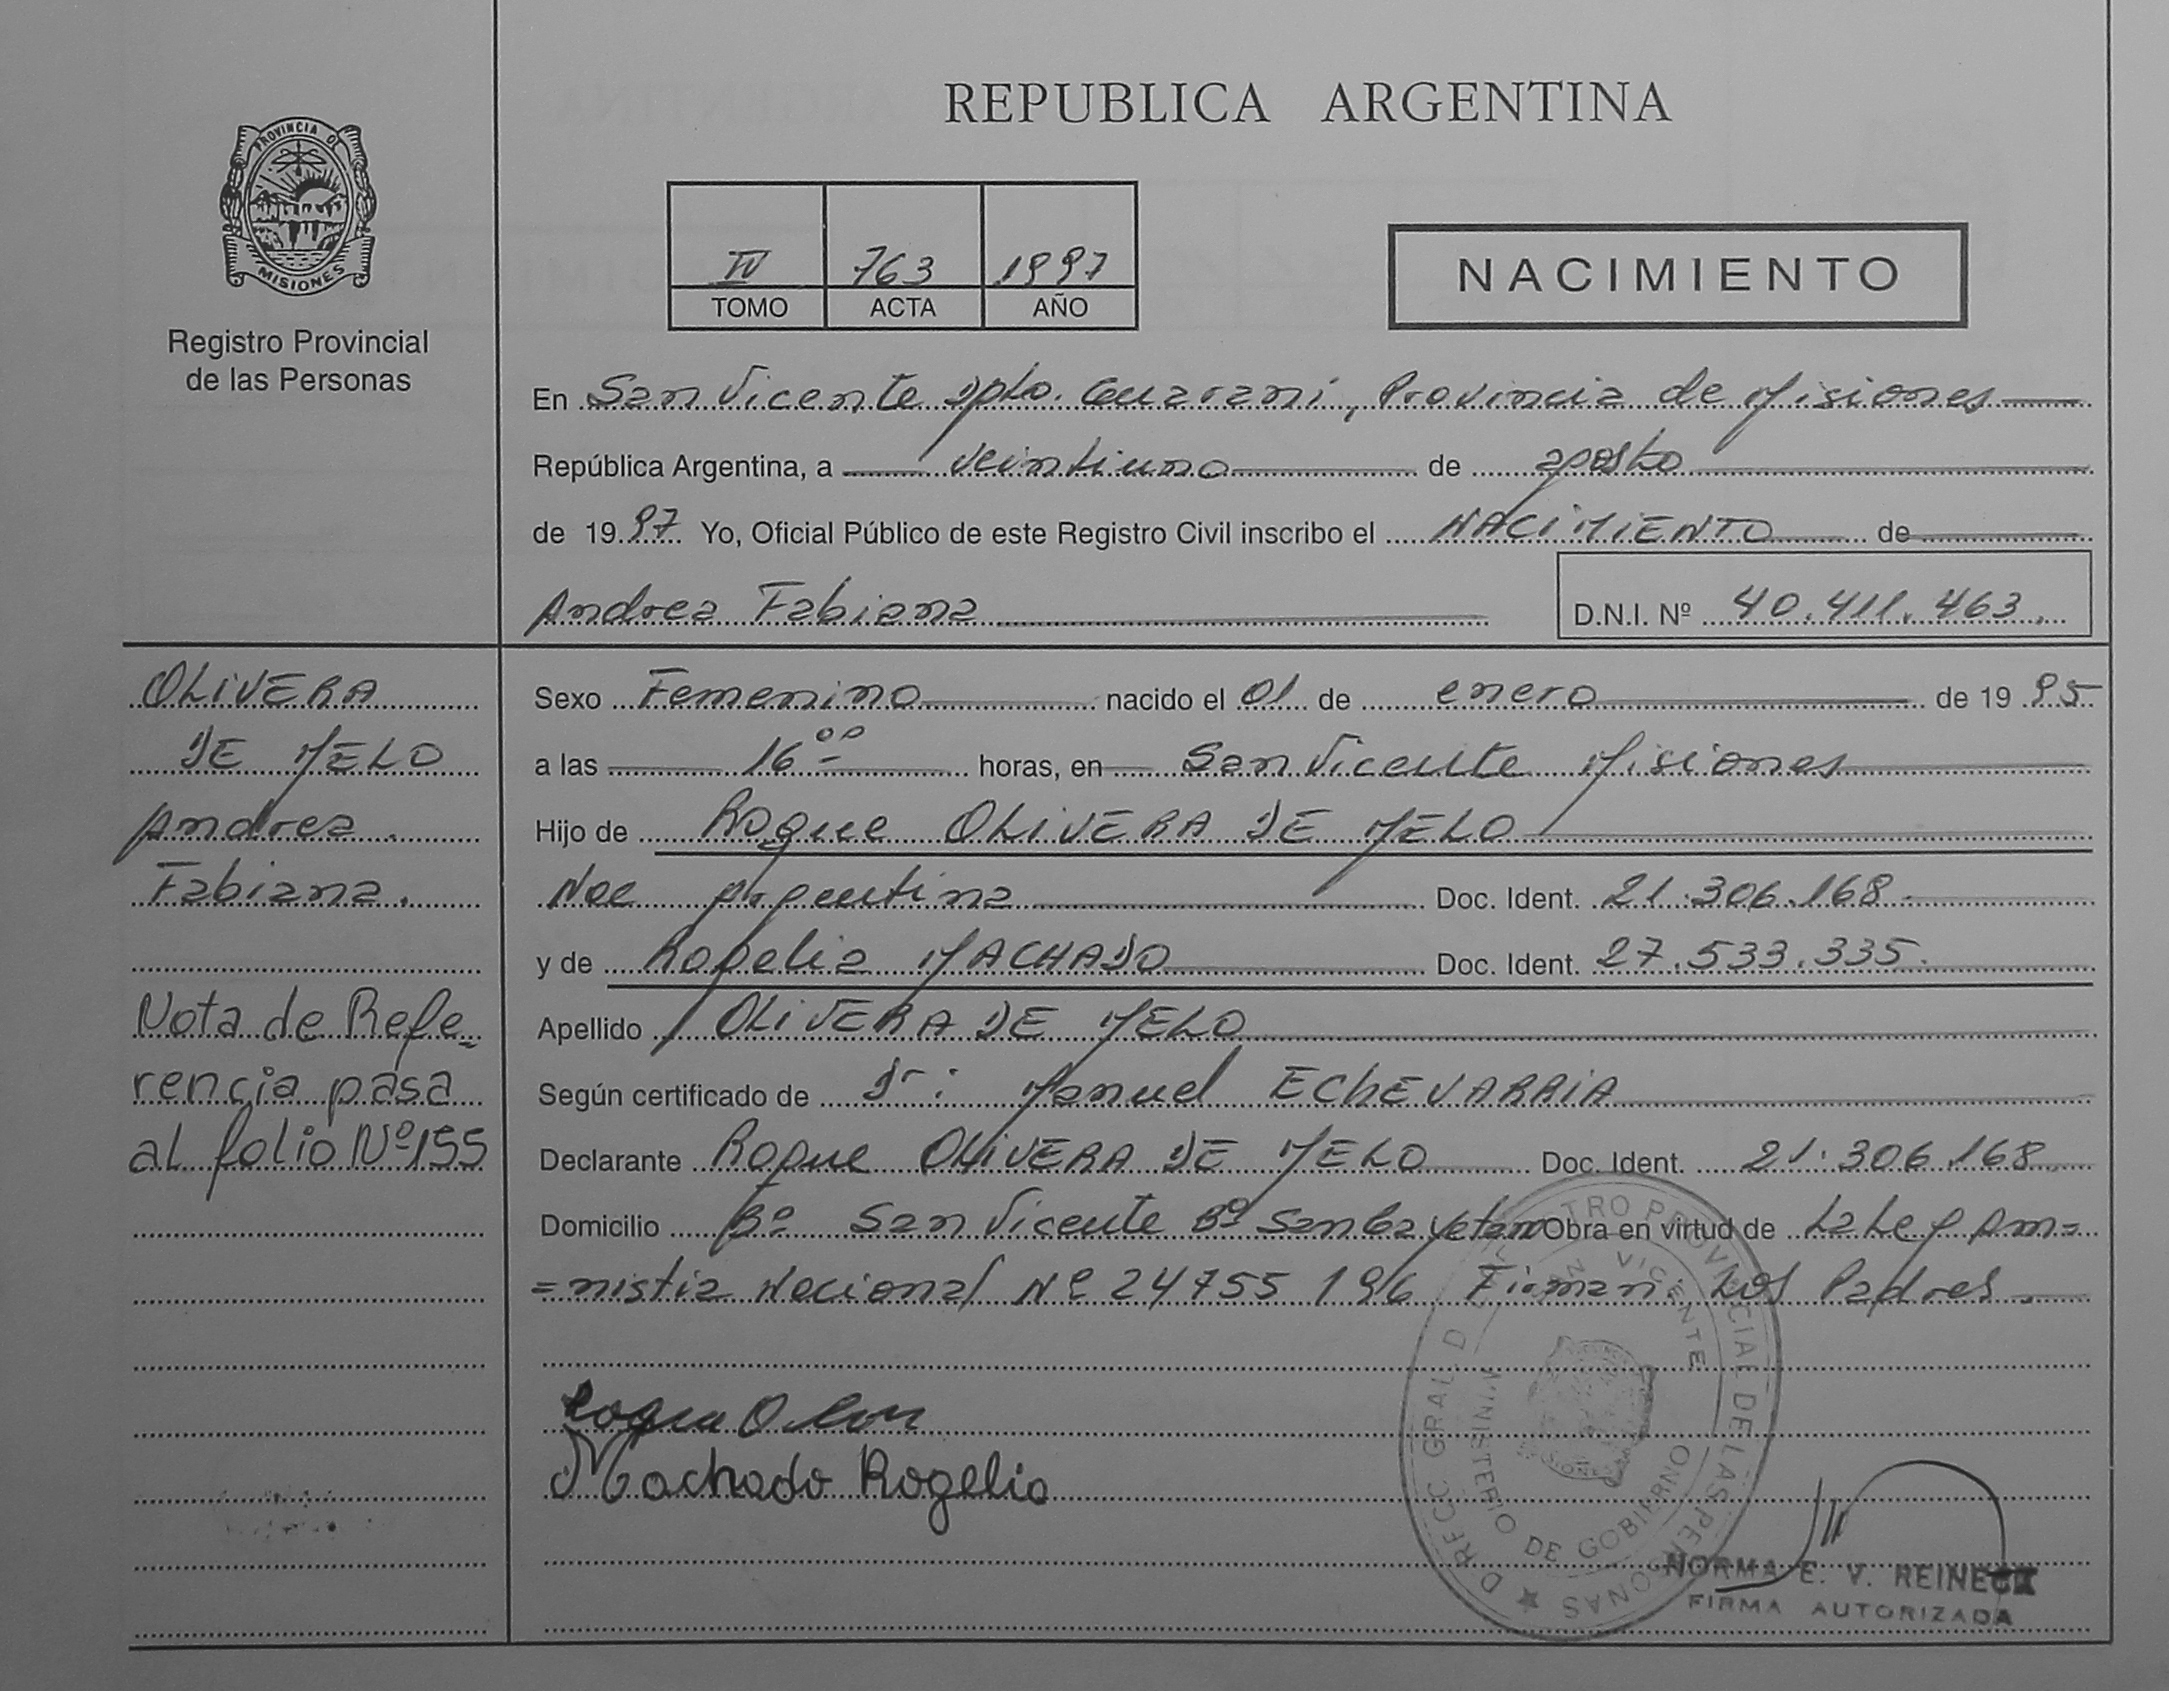 REPUBLICA ARGENTINA
PROVINCIA DE
MISIONES
Registro Provincial
de las Personas
IV 763 1997
TOMO ACTA AÑO
NACIMIENTO
En San Vicente Dpto. Guaraní, Provincia de Misiones
República Argentina, a veintiuno de agosto
de 1997 Yo, Oficial Público de este Registro Civil inscribo el NACIMIENTO de
Andrea Fabiana
D.N.I. Nº 40.411.463.
OLIVERA
DE MELO
Andrea.
Fabiana.
Nota de Refe=
rencia pasa
al folio Nº155
Sexo Femenino nacido el 01 de enero de 1995
a las 16 00 horas, en San Vicente Misiones
Hijo de Roque OLIVERA DE MELO
Nac Argentina Doc. Ident. 21.306.168.
y de Rogelia MACHADO Doc. Ident. 27.533.335.
Apellido OLIVERA DE MELO
Según certificado de Dr: Manuel EChEVARRIA
Declarante Roque OLIVERA DE MELO Doc. Ident. 21.306.168
Domicilio Bº San Vicente Bº San Cayetano Obra en virtud de La Ley Am=
=nistia Nacional Nº 24755 196 Firman: Los Padres.
Machado Rogelia
REGISTRO PROVINCIAL DE LAS PERSONAS
SAN VICENTE
MINISTERIO DE GOBIERNO
NORMA E. V. REINECK
FIRMA AUTORIZADA